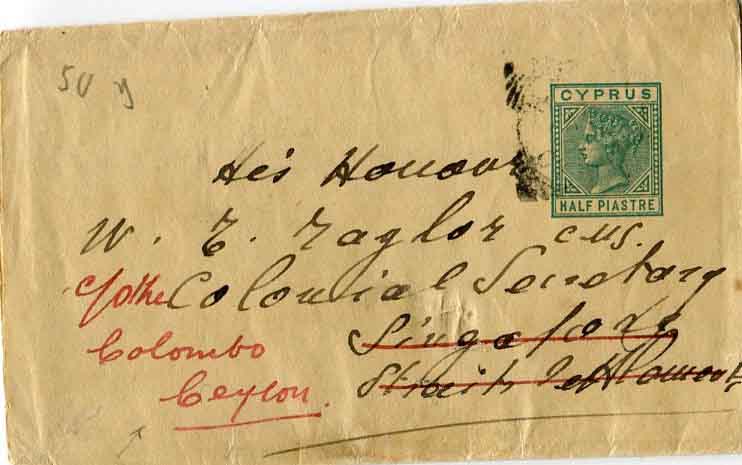 50
CYPRUS
HALF PIASTRE
His Honour
W. E. Taylor CMG.
c/o the Colonial Secretary
Singapore
Colombo
Straits Settlements
Ceylon.